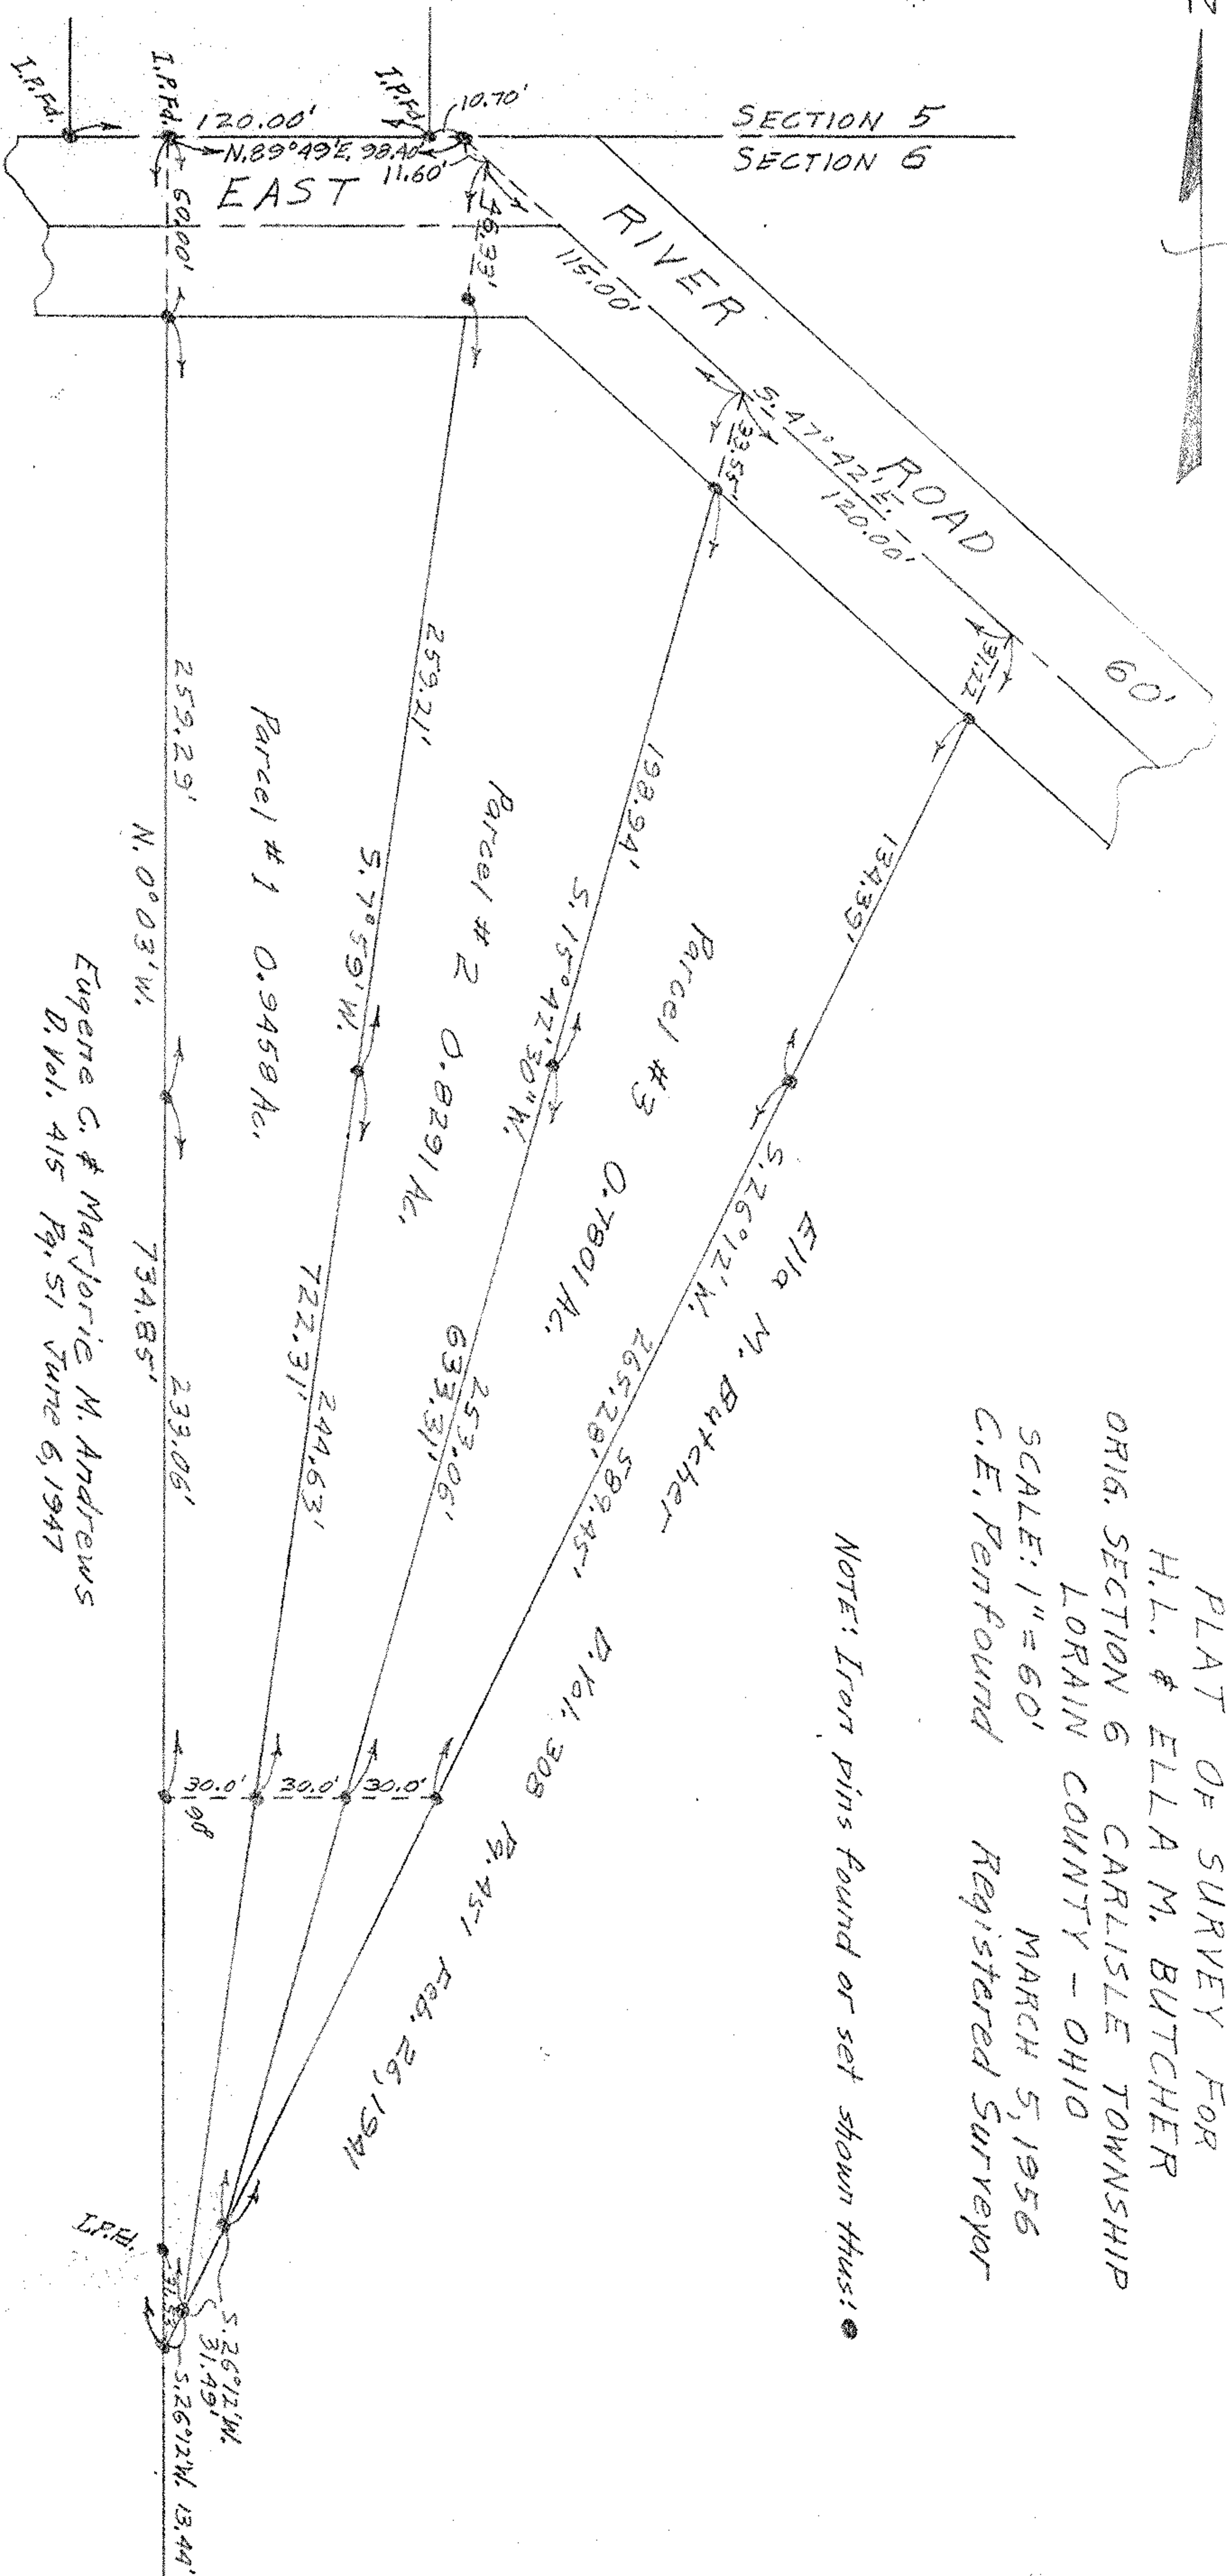 PLAT OF SURVEY FOR
H.L. & ELLA M. BUTCHER
ORIG. SECTION 6 CARLISLE TOWNSHIP
LORAIN COUNTY - OHIO
SCALE: 1" = 60' MARCH 5, 1956
C.E. Penfound Registered Surveyor
NOTE: Iron pins found or set shown thus:
SECTION 5
SECTION 6
I.P.Fd.
I.P.Fd.
I.P.Fd.
120.00'
10.70'
N.89°49'E. 98.40'
11.60'
EAST RIVER ROAD
60'
60.00'
46.33'
115.00'
S.47°42'E.
120.00'
33.55'
31.22
259.29'
N. 0°03'W.
734.85'
233.06'
Eugene C. & Marjorie M. Andrews
D. Vol. 415 Pg. 51 June 6, 1947
Parcel #1 0.9458 Ac.
259.21'
S. 7°59' W.
722.31'
244.63'
Parcel #2 0.8291 Ac.
198.94'
S. 15°42'30" W.
253.06'
633.31'
Parcel #3 0.7801 Ac.
134.39'
S. 26°12' W.
265.28'
589.45'
Ella M. Butcher D. Vol. 308 Pg. 451 Feb. 26, 1941
30.0'
30.0'
30.0'
90°
I.P.Fd.
S. 26°12'W.
31.49'
S. 26°12'W. 13.44'